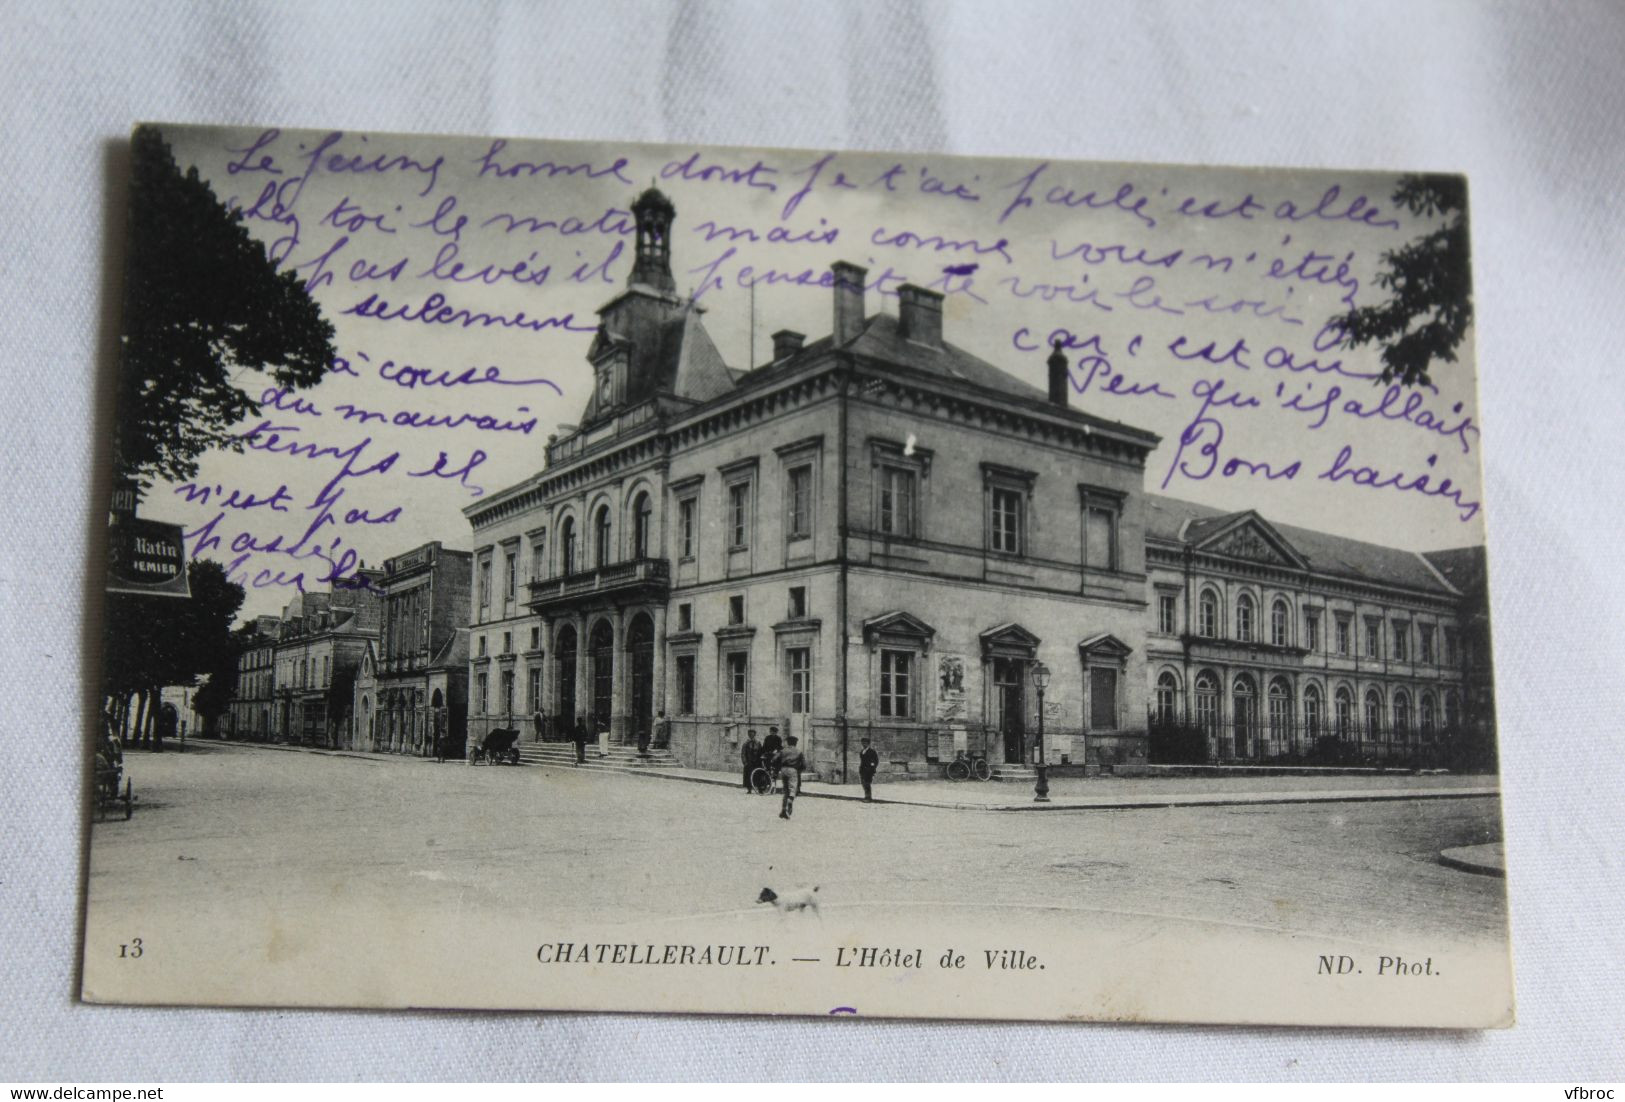 Le jeune home dont je t'ai parlé est aller
chez toi le matin mais come vous n'étiez
pas levés il pensait te voir le soir
seulement
à couse
du mauvais
temps il
n'est pas
passé
par la
car c'est au
Peu qu'il allait
Bons baisers
Matin
13
CHATELLERAULT. — L'Hôtel de Ville.
ND. Phot.
vfbroc